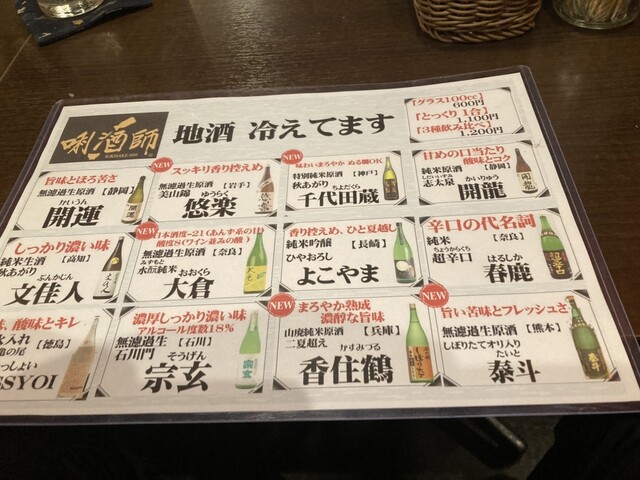 唎酒師
KIKISAKE-SHI
地酒 冷えてます
『グラス100cc』
600円
『とっくり 1合』
1,100円
『3種飲み比べ』
1,200円
旨味とほろ苦さ
無濾過生原酒【静岡】
かいうん
開運
NEW
スッキリ香り控えめ
無濾過生原酒【岩手】
美山錦 ゆうらく
悠楽
NEW
味わいまろやか ぬる燗OK
特別純米原酒【神戸】
秋あがり ちよだくら
千代田蔵
甘めの口当たり
酸味とコク
純米原酒【静岡】
しだいずみ
志太泉 かいりゅう
開龍
しっかり濃い味
純米生原酒【高知】
秋あがり ぶんかじん
文佳人
NEW
日本酒度-21(あんず系の甘
酸度8(ワイン並みの酸)
無濾過生原酒【奈良】
みずもと
水酛純米 おおくら
大倉
香り控えめ、ひと夏越し
純米吟醸【長崎】
ひやおろし
よこやま
辛口の代名詞
純米【奈良】
ちょうからくち
超辛口 はるしか
春鹿
味、酸味とキレ
火入れ【徳島】
の尾
っしょい
SSYOI
濃厚しっかり濃い味
アルコール度数18%
無濾過生【石川】
石川門 そうげん
宗玄
NEW
まろやか熟成
濃醇な旨味
山廃純米原酒【兵庫】
二夏超え かすみつる
香住鶴
NEW
旨い苦味とフレッシュさ
無濾過生原酒【熊本】
しぼりたてオリ入り
たいと
泰斗